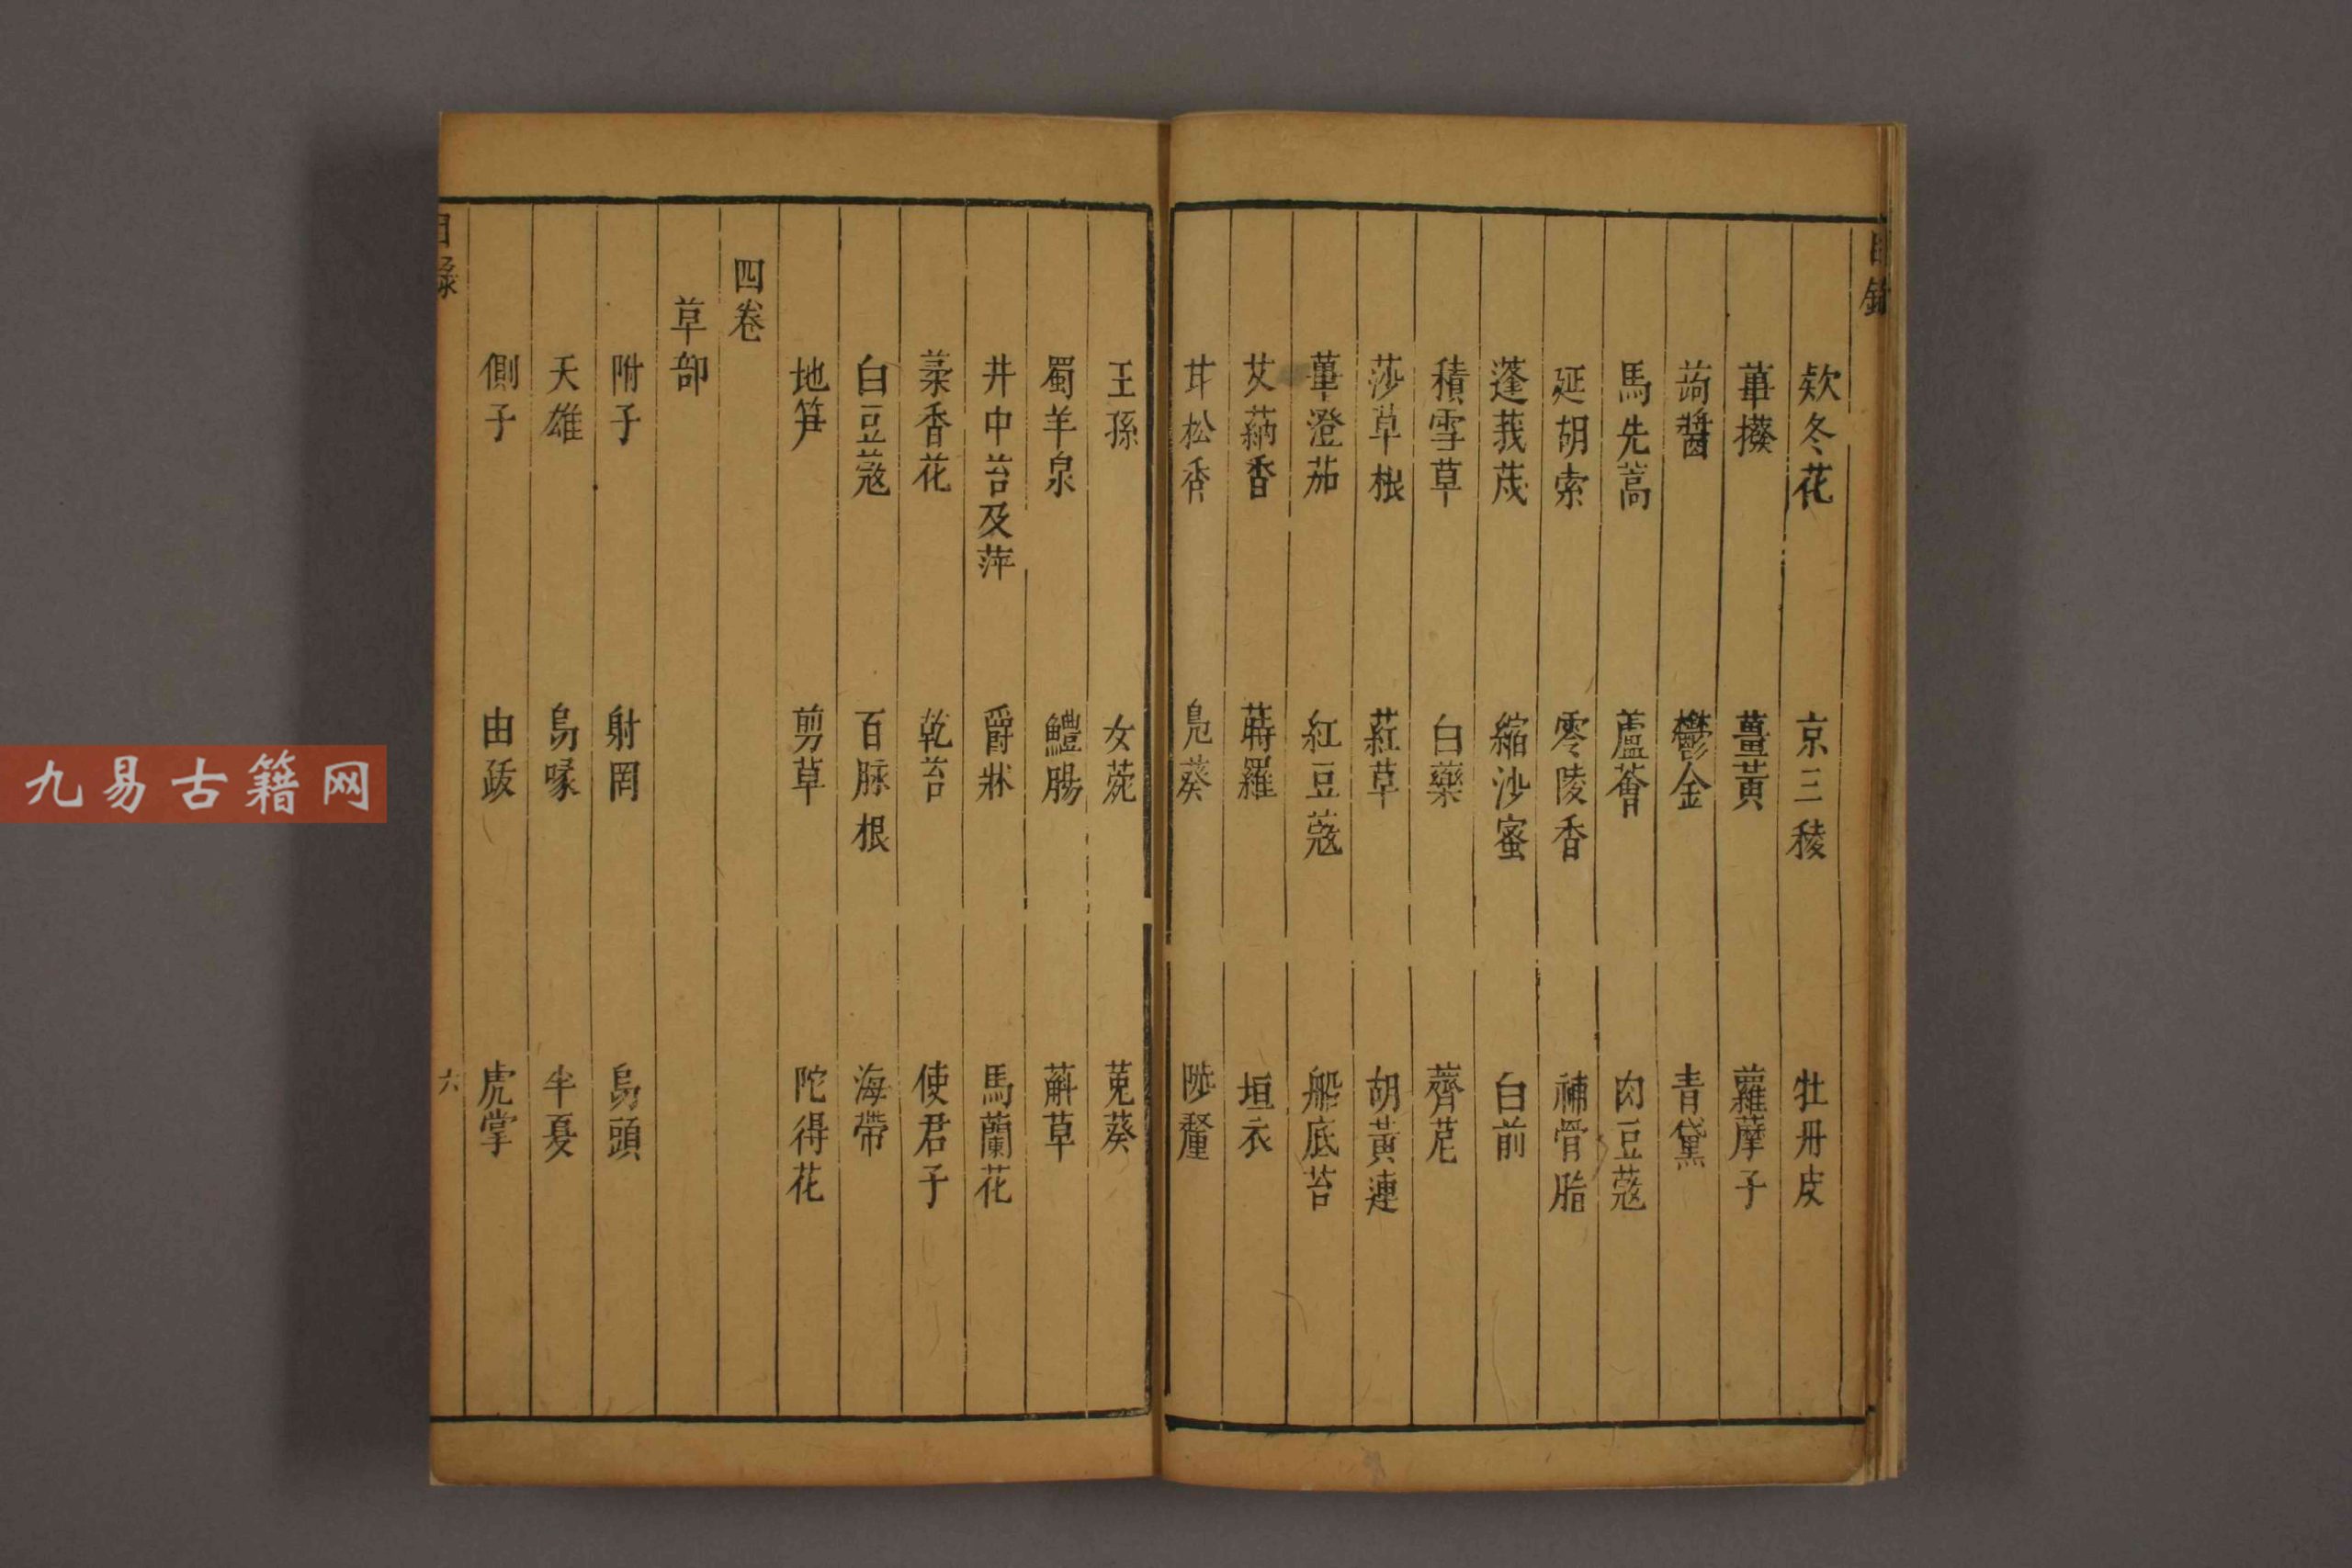 目錄
欵冬花 京三稜 牡丹皮
蓽撥 薑黃 蘿藦子
蒟醬 鬱金 青黛
馬先蒿 蘆薈 肉豆蔻
延胡索 零陵香 補骨脂
蓬莪茂 縮沙蜜 白前
積雪草 白藥 薺苨
莎草根 葒草 胡黃連
蓽澄茄 紅豆蔻 船底苔
艾蒳香 蒔羅 垣衣
甘松香 鳧葵 陟釐
王孫 女菀 菟葵
蜀羊泉 鱧腸 蔛草
井中苔及萍 爵牀 馬蘭花
菜香花 乾苔 使君子
白豆蔻 百脉根 海帶
地笋 剪草 陀得花
四卷
草部
附子 射罔 烏頭
天雄 烏喙 半夏
側子 由跋 虎掌
目錄 六
九易古籍网